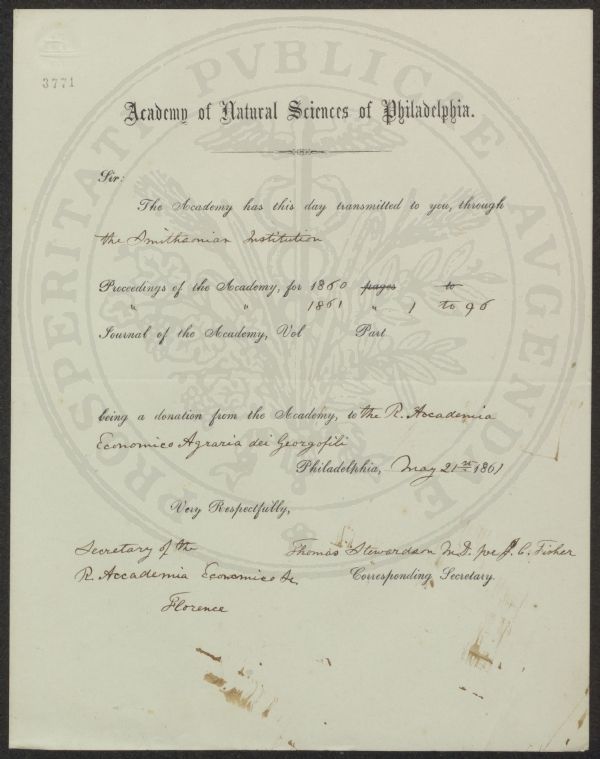 3771
PROSPERITATI PVBLICAE AVGENDAE
Academy of Natural Sciences of Philadelphia.
Sir:
The Academy has this day transmitted to you, through
the Smithsonian Institution
Proceedings of the Academy, for 1860 pages to
" " 1861 " 1 to 96
Journal of the Academy, Vol Part
being a donation from the Academy, to the R. Accademia
Economico Agraria dei Georgofili
Philadelphia, May 21st 1861
Very Respectfully,
Secretary of the
R. Accademia Economico &c
Florence
Thomas Stewardson M.D. per J. C. Fisher
Corresponding Secretary.